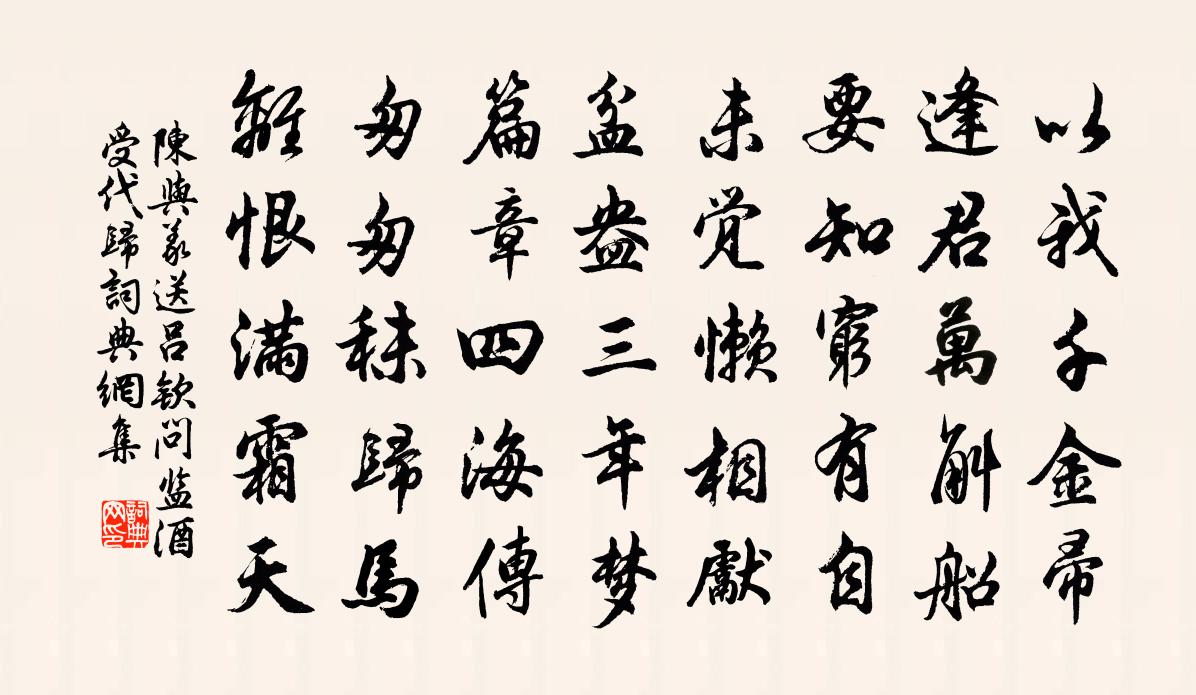 以我千金帚
逢君萬斛船
要知窮有自
未觉懒相獻
盆盎三年梦
篇章四海傳
匆匆秣歸馬
離恨满霜天
陳與義送呂欽問监酒
受代歸詞典網集
詞典网印